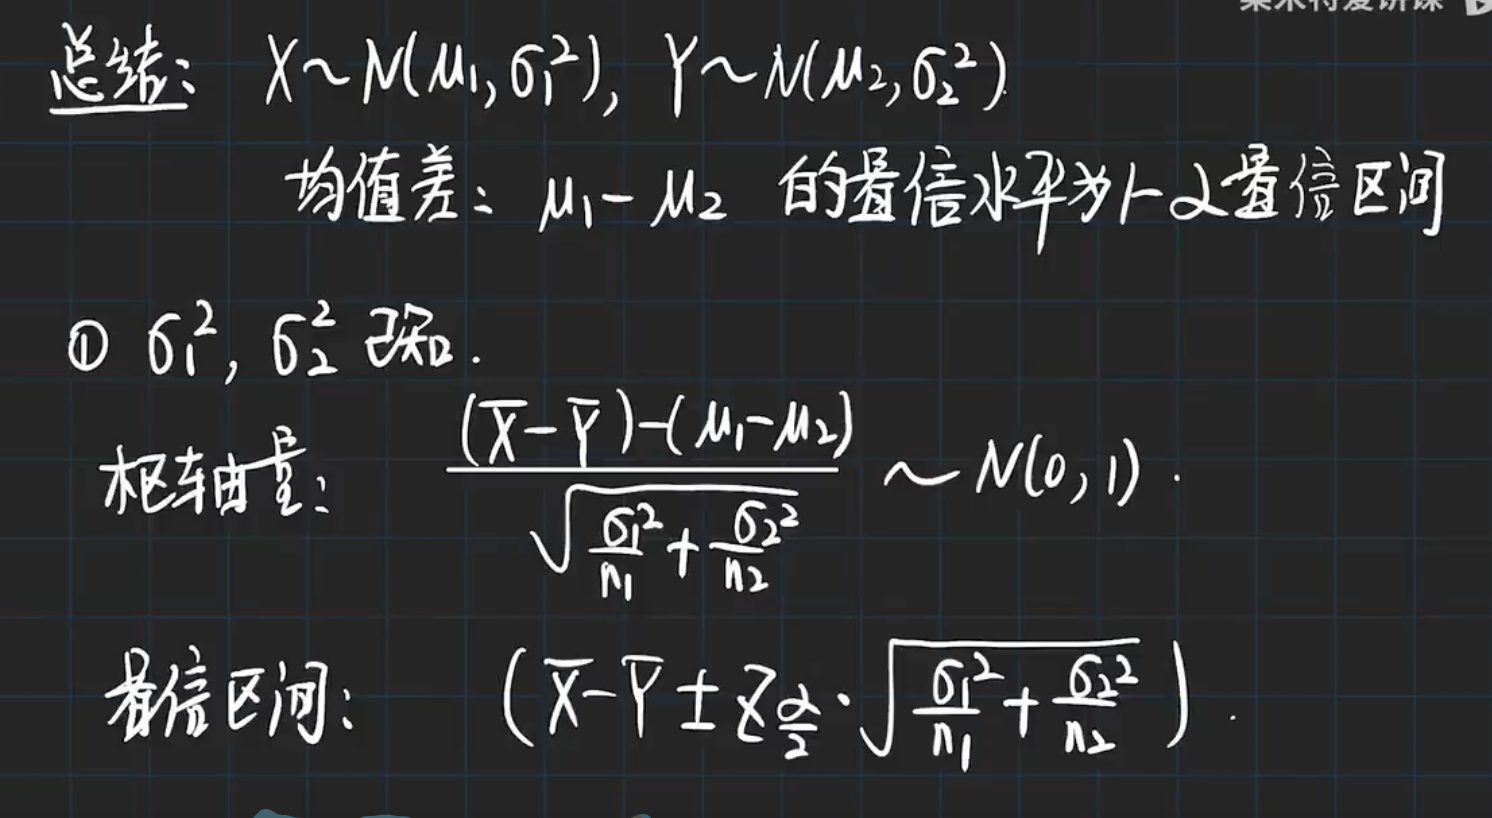 总结: X~N(μ₁,σ₁²), Y~N(μ₂,σ₂²).
均值差: μ₁-μ₂ 的置信水平为1-α置信区间
① σ₁², σ₂² 已知.
枢轴量: ((X̄-Ȳ)-(μ₁-μ₂))/√(σ₁²/n₁+σ₂²/n₂) ~ N(0,1).
置信区间: (X̄-Ȳ±Z_{α/2}·√(σ₁²/n₁+σ₂²/n₂)).